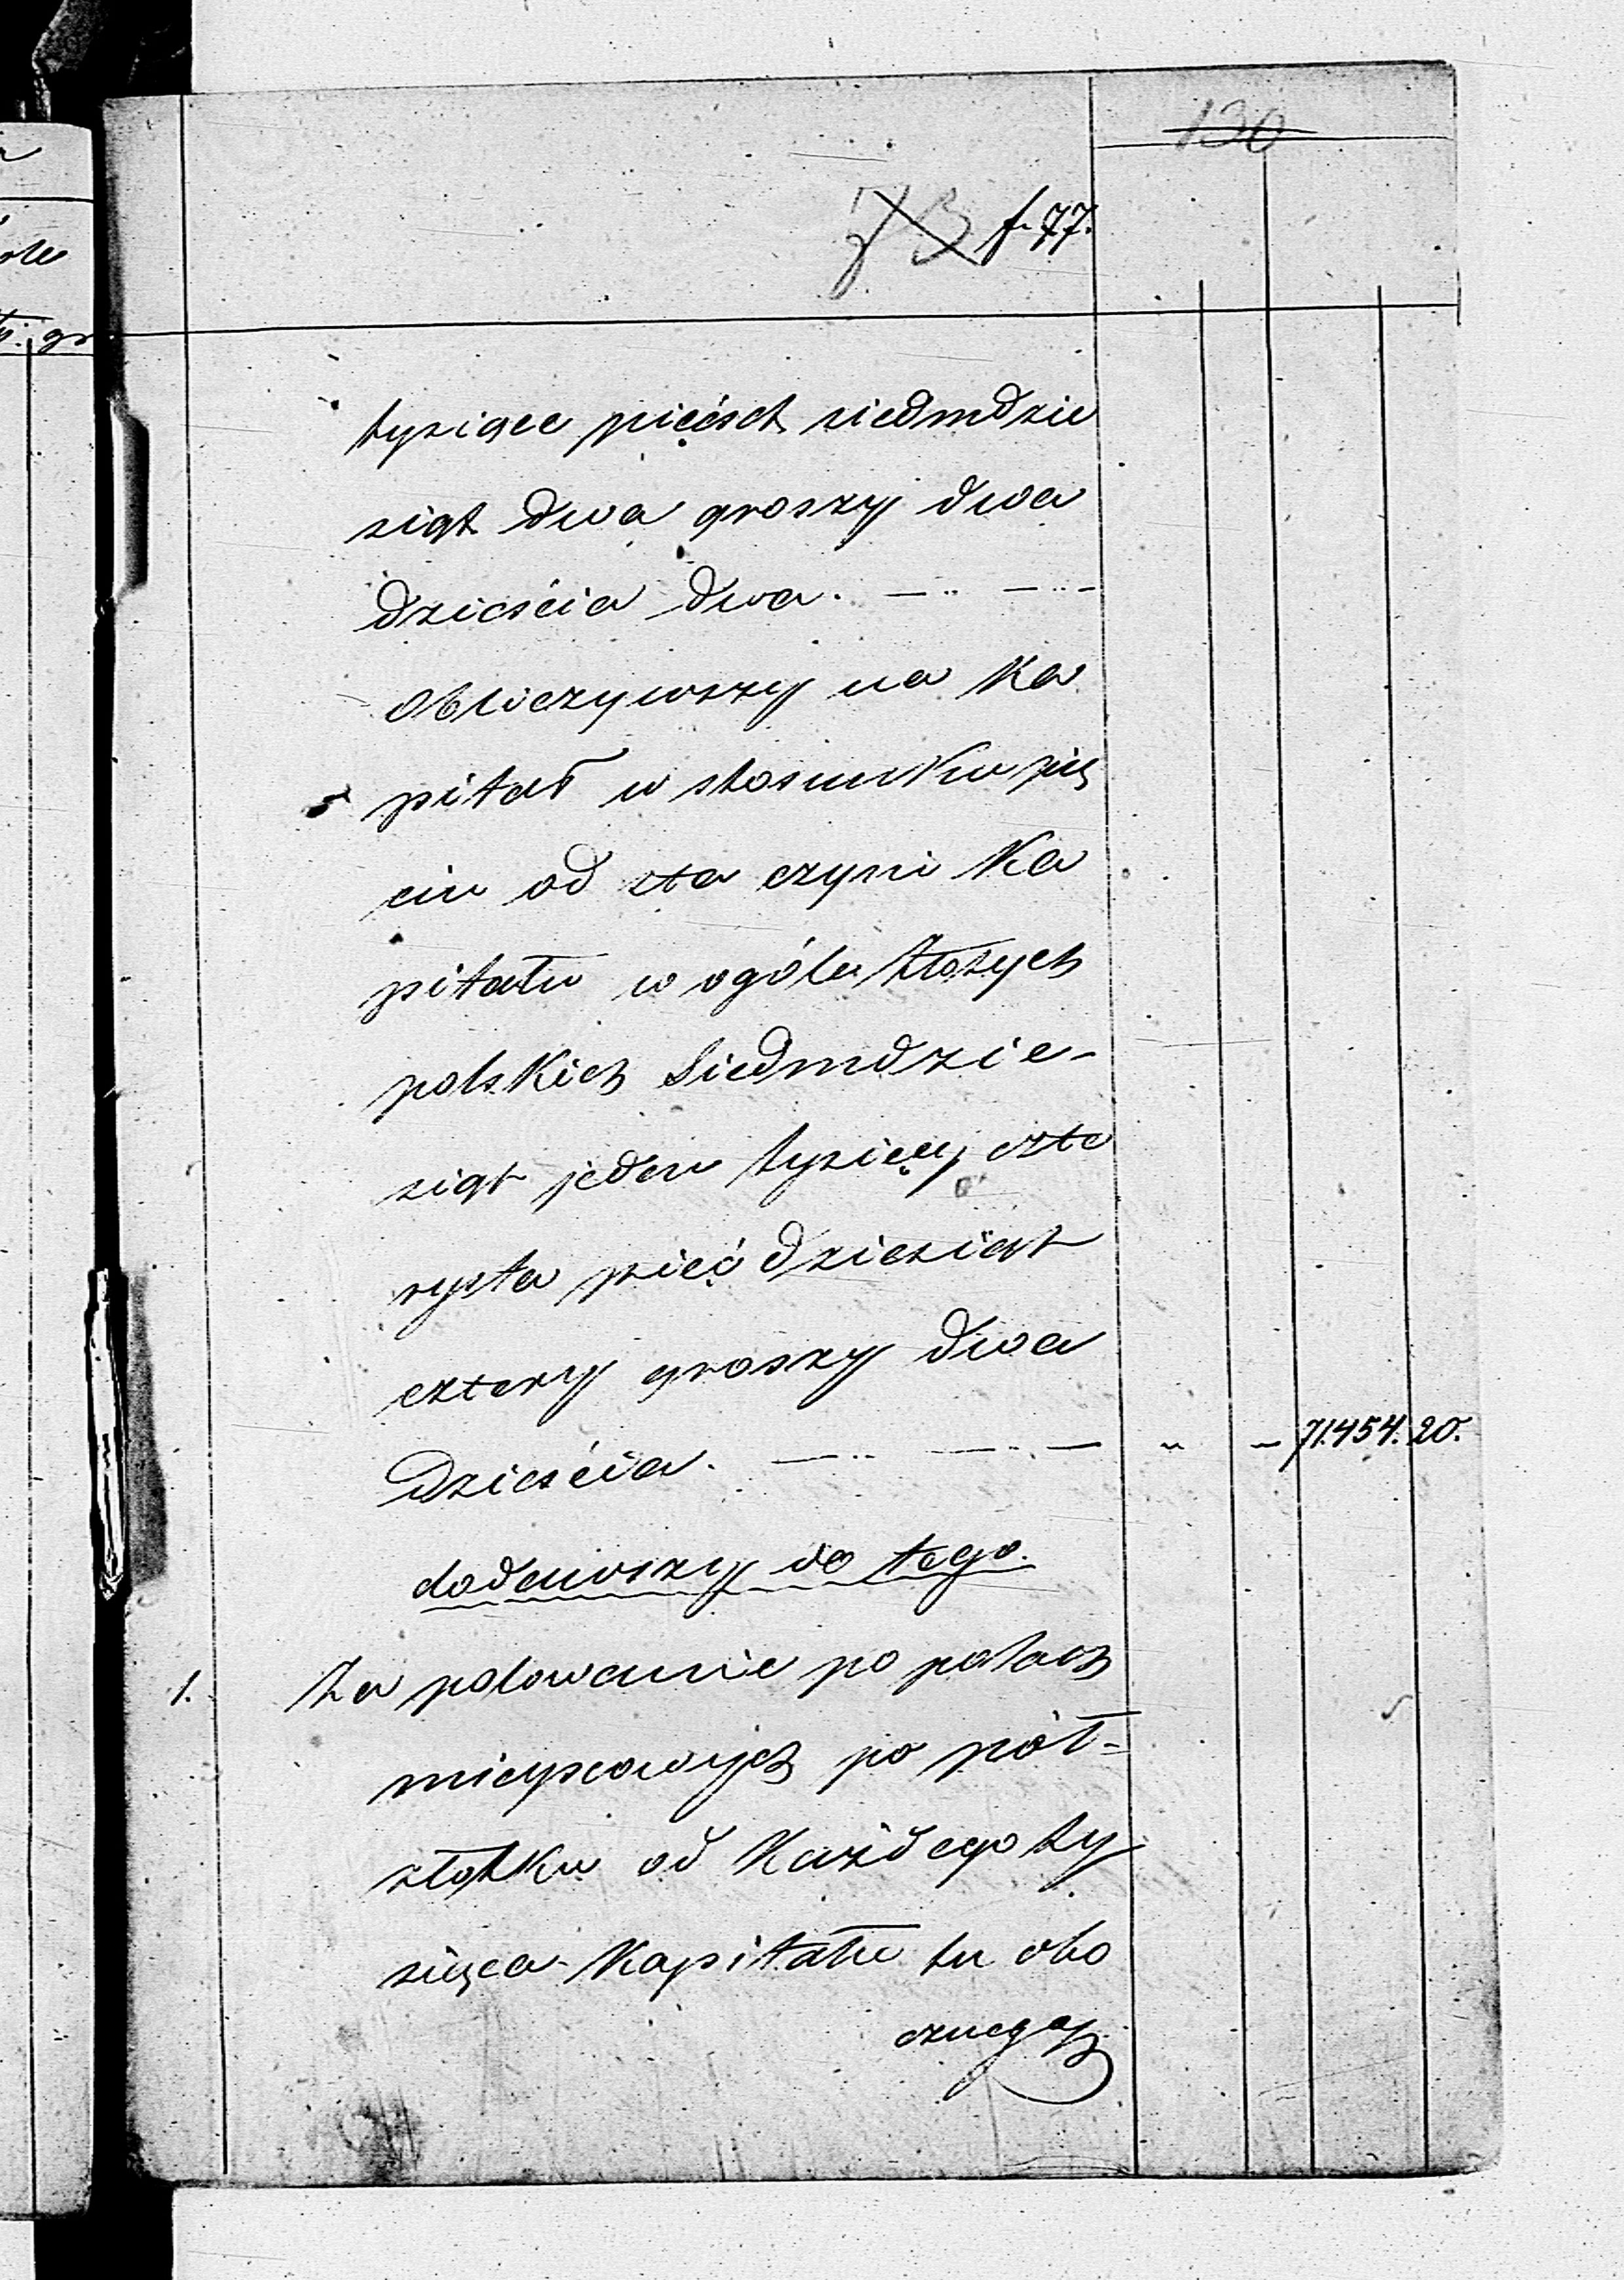 130
73 f. 77.
tysiące pięćset siedmdzie
siąt dwa groszy dwa
dzieścia dwa. — .. — ..-
obliczywszy na Ka
pitał w stosunku pię
ciu od sta czyni Ka
pitału w ogóle złotych
polskich Siedmdzie-
siąt jeden tysięcy czte
rysta pięćdziesiąt
cztery groszy dwa
dzieścia. — .. — . — " — 71.454. 20.
dodawszy do tego.
1. Za polowanie po polach
mieyscowych po pół=
złotku od Każdego ty
siąca Kapitału tu obo
cznego